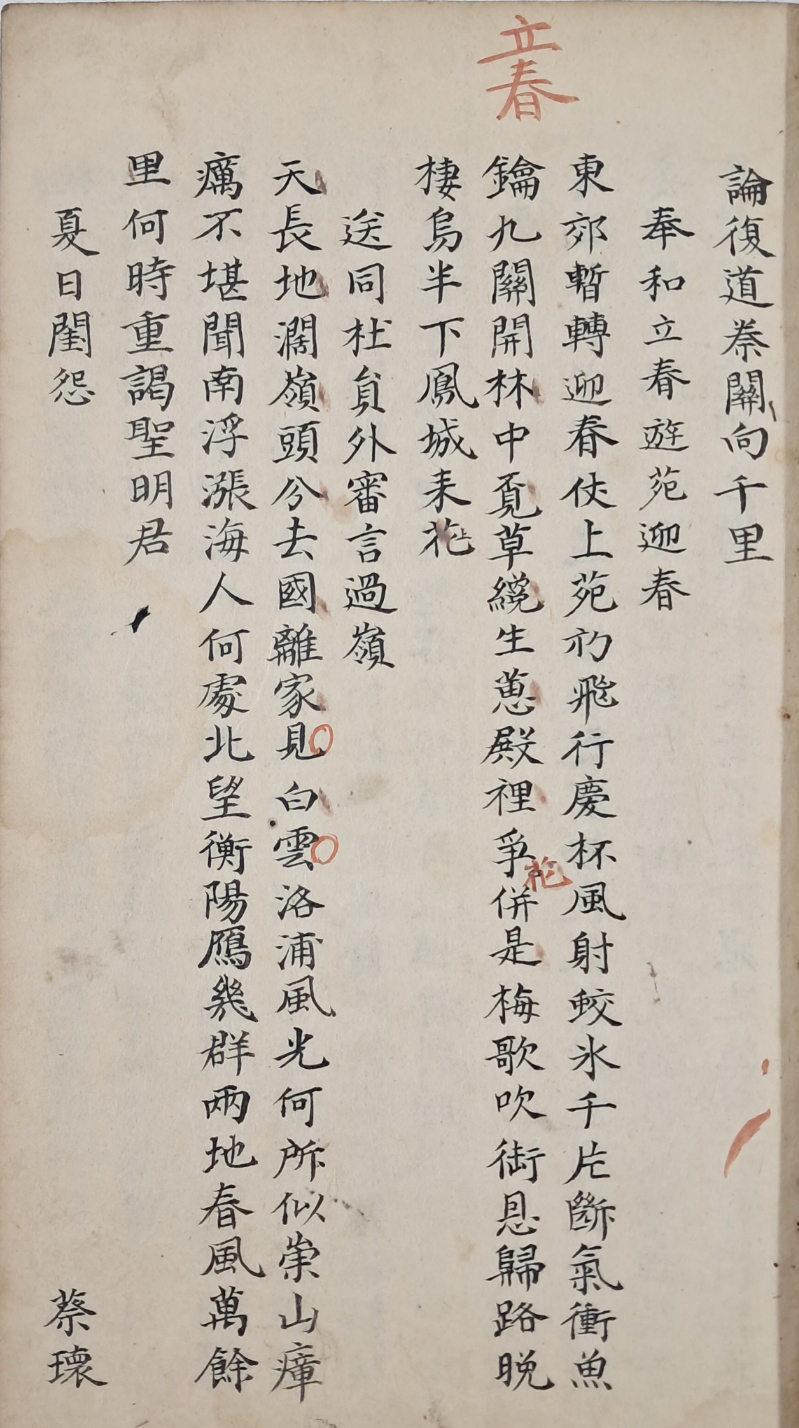 立春
論復道叅關向千里
奉和立春遊苑迎春
東郊暫轉迎春仗上苑初飛行慶杯風射蛟氷千片斷氣衝魚
鑰九關開林中覔草纔生蕙殿裡爭併是梅歌吹銜恩歸路晚
花
棲烏半下鳳城来花
送同杜貟外審言過嶺
天長地濶嶺頭分去國離家見白雲洛浦風光何所似崇山瘴
癘不堪聞南浮漲海人何處北望衡陽鴈幾群兩地春風萬餘
里何時重謁聖明君
夏日閨怨 蔡瓌